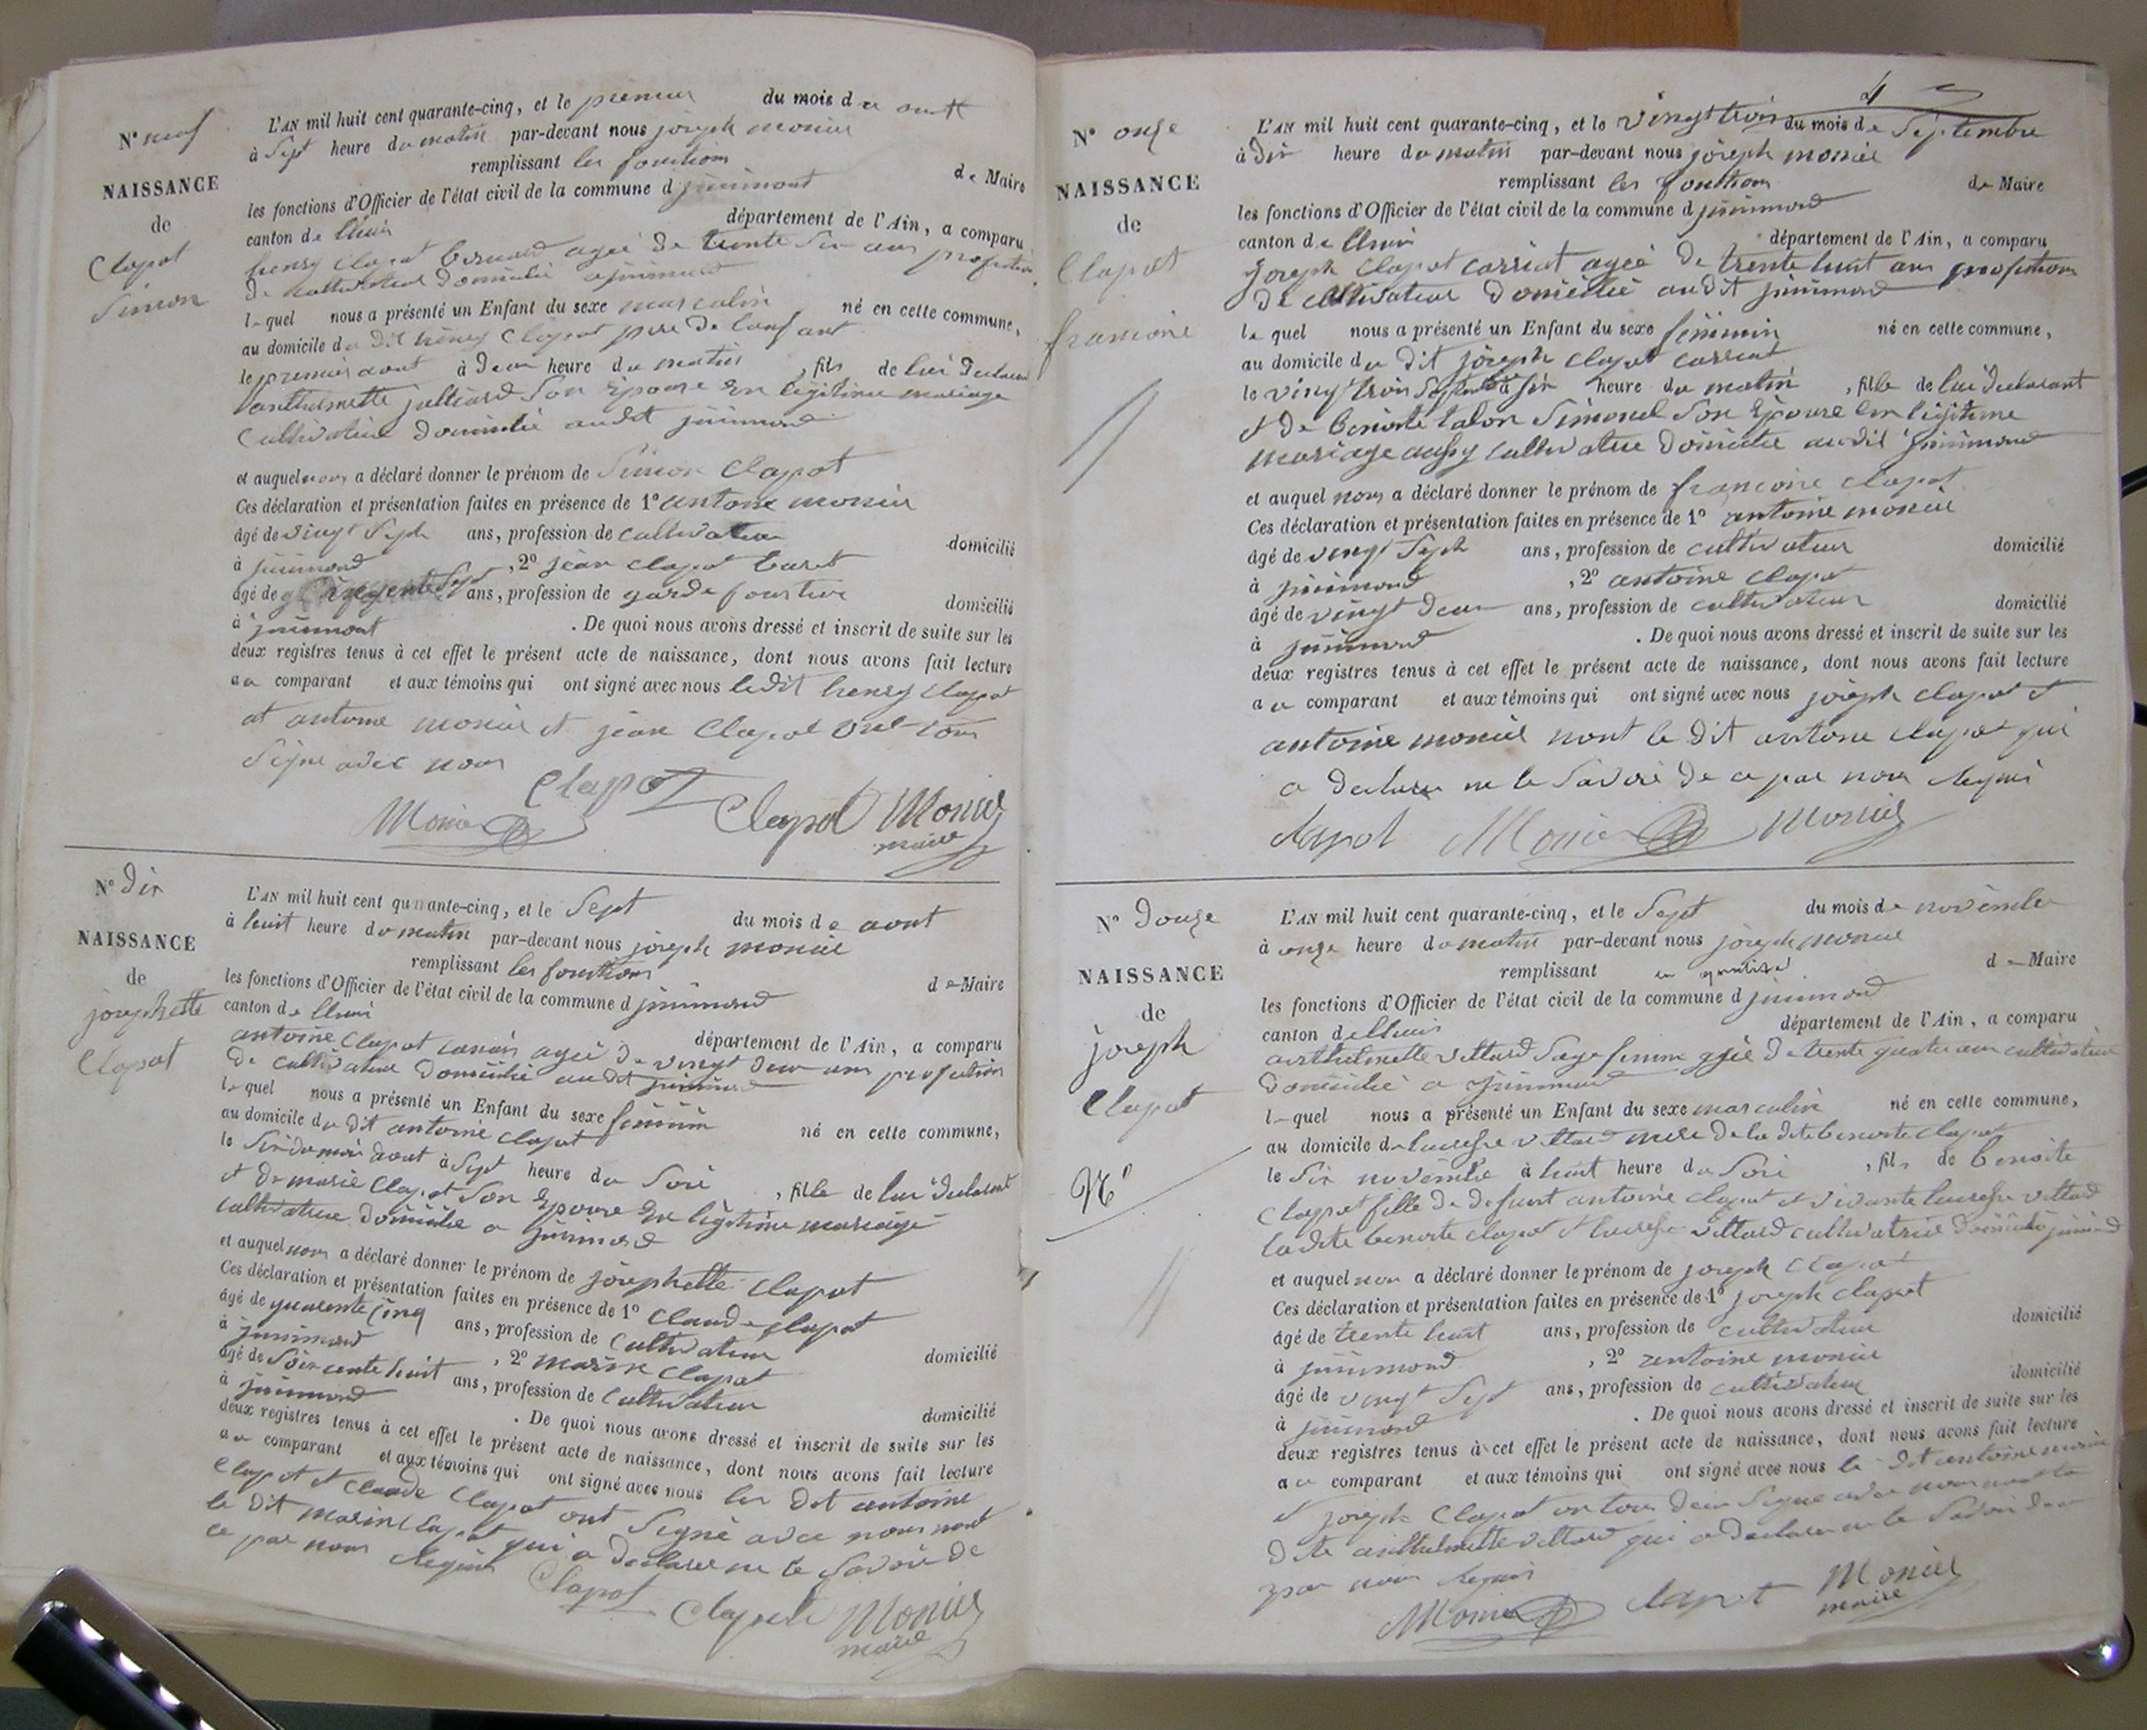 N° neuf
NAISSANCE
de
Clapot
Simon
L'AN mil huit cent quarante-cinq, et le premier du mois de
à Sept heure du matin par-devant nous joseph monier
remplissant les fonctions de Maire
les fonctions d'Officier de l'état civil de la commune d jujurieux
canton de lhuis département de l'Ain, a comparu
henry Clapot agée de trente Six ans profession
de cultivateur domicilié
lequel nous a présenté un Enfant du sexe masculin né en cette commune,
au domicile du dit henry Clapot pere de lenfant
le premier aout à deux heure du matin, fils de lui declarant
anthelmette julliard Son Epouse En legitime mariage
Cultivatrice domicilié audit
et auquel nous a déclaré donner le prénom de Simon Clapot
Ces déclaration et présentation faites en présence de 1° antoine monier
âgé de vingt Sept ans, profession de cultivateur domicilié
à, 2° jean Clapot
âgé de ans, profession de garde domicilié
à. De quoi nous avons dressé et inscrit de suite sur les
deux registres tenus à cet effet le présent acte de naissance, dont nous avons fait lecture
au comparant et aux témoins qui ont signé avec nous ledit henry Clapot
et antoine monier et jean Clapot ont tous
Signe avec nous
Clapot
Monier Clapot Monier
maire
N° dix
NAISSANCE
de
josephette
Clapot
L'AN mil huit cent quarante-cinq, et le Sept du mois de aout
à huit heure du matin par-devant nous joseph monier
remplissant les fonctions de Maire
les fonctions d'Officier de l'état civil de la commune d
canton de lhuis département de l'Ain, a comparu
antoine Clapot agée de vingt deux ans profession
de cultivateur domicilié audit
lequel nous a présenté un Enfant du sexe feminin né en cette commune,
au domicile du dit antoine Clapot
le Six du mois daout à Sept heure du Soir, fille de lui declarant
et de marie Clapot Son Epouse En legitime mariage
cultivatrice domicilié a
et auquel nous a déclaré donner le prénom de josephette Clapot
Ces déclaration et présentation faites en présence de 1° Claude Clapot
âgé de quarente Cinq ans, profession de Cultivateur domicilié
à, 2° marin Clapot
âgé de Soixcente huit ans, profession de Cultivateur domicilié
à. De quoi nous avons dressé et inscrit de suite sur les
deux registres tenus à cet effet le présent acte de naissance, dont nous avons fait lecture
au comparant et aux témoins qui ont signé avec nous les dit antoine
Clapot et Claude Clapot ont Signé avec nous nont
le dit marin Clapot qui a declare ne le Savoir de
ce par nous Requis
Clapot Clapot Monier
maire
4
N° onze
NAISSANCE
de
Clapot
francoise
L'AN mil huit cent quarante-cinq, et le vingt trois du mois de Septembre
à dix heure du matin par-devant nous joseph monier
remplissant les fonctions de Maire
les fonctions d'Officier de l'état civil de la commune d
canton de lhuis département de l'Ain, a comparu
joseph Clapot carriat agée de trente huit ans profession
de cultivateur domicilié audit
le quel nous a présenté un Enfant du sexe feminin né en cette commune,
au domicile du dit joseph Clapot carriat
le vingt trois Septembre à Six heure du matin, fille de lui declarant
et de benoite talon Simonel Son Epouse En legitime
mariage aussy cultivatrice domicilie audit
et auquel nous a déclaré donner le prénom de francoise Clapot
Ces déclaration et présentation faites en présence de 1° antoine monier
âgé de vingt Sept ans, profession de cultivateur domicilié
à, 2° antoine Clapot
âgé de vingt deux ans, profession de cultivateur domicilié
à. De quoi nous avons dressé et inscrit de suite sur les
deux registres tenus à cet effet le présent acte de naissance, dont nous avons fait lecture
au comparant et aux témoins qui ont signé avec nous joseph Clapot et
antoine monier nont le dit antoine Clapot qui
a declare ne le Savoir de ce par nous Requis
Clapot Monier Monier
N° douze
NAISSANCE
de
joseph
Clapot
Nl
L'AN mil huit cent quarante-cinq, et le Sept du mois de novembre
à onze heure du matin par-devant nous joseph monier
remplissant de Maire
les fonctions d'Officier de l'état civil de la commune d
canton de lhuis département de l'Ain, a comparu
anthelmette vettard Sage femme agée de trente quatre ans cultivatrice
domicilié a
lequel nous a présenté un Enfant du sexe masculin né en cette commune,
au domicile de vettard mere de la dite benoite Clapot
le Six novembre à huit heure du Soir, fils de benoite
Clapot fille de defunt antoine Clapot et vivante vettard
la dite benoite clapot et vettard cultivatrice domicilié
et auquel nous a déclaré donner le prénom de joseph Clapot
Ces déclaration et présentation faites en présence de 1° joseph Clapot
âgé de trente huit ans, profession de cultivateur domicilié
à, 2° antoine monier
âgé de vingt Sept ans, profession de cultivateur domicilié
à. De quoi nous avons dressé et inscrit de suite sur les
deux registres tenus à cet effet le présent acte de naissance, dont nous avons fait lecture
au comparant et aux témoins qui ont signé avec nous le dit antoine monier
et joseph Clapot on tous deux Signe avec nous nont la
dite anthelmette vettard qui a declare ne le Savoir de ce
par nous Requis
Monier Clapot Monier
maire